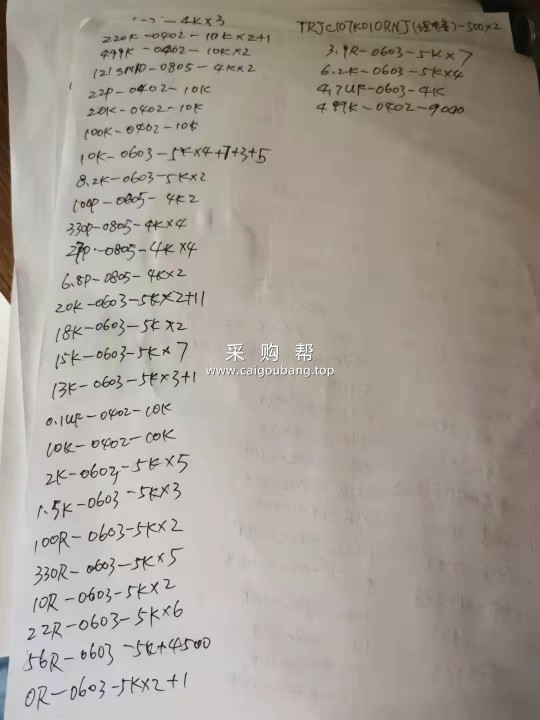 - 4K×3
220K-0402-10K×2+1
499K-0402-10K×2
121SMD-0805-4K×2
22P-0402-10K
20K-0402-10K
100K-0402-10K
10K-0603-5K×4+7+3+5
8.2K-0603-5K×2
100P-0805-4K2
330P-0805-4K×4
27P-0805-4K×4
6.8P-0805-4K×2
20K-0603-5K×2+11
18K-0603-5K×2
15K-0603-5K×7
13K-0603-5K×3+1
0.1UF-0402-10K
10K-0402-10K
2K-0603-5K×5
1.5K-0603-5K×3
100R-0603-5K×2
330R-0603-5K×5
10R-0603-5K×2
22R-0603-5K×6
56R-0603-5K+4500
0R-0603-5K×2+1
TRJC107K010RNJ(钽电容)-500×2
3.9R-0603-5K×7
6.2K-0603-5K×4
4.7UF-0603-4K
4.99K-0402-9000
采购帮
www.caigoubang.top